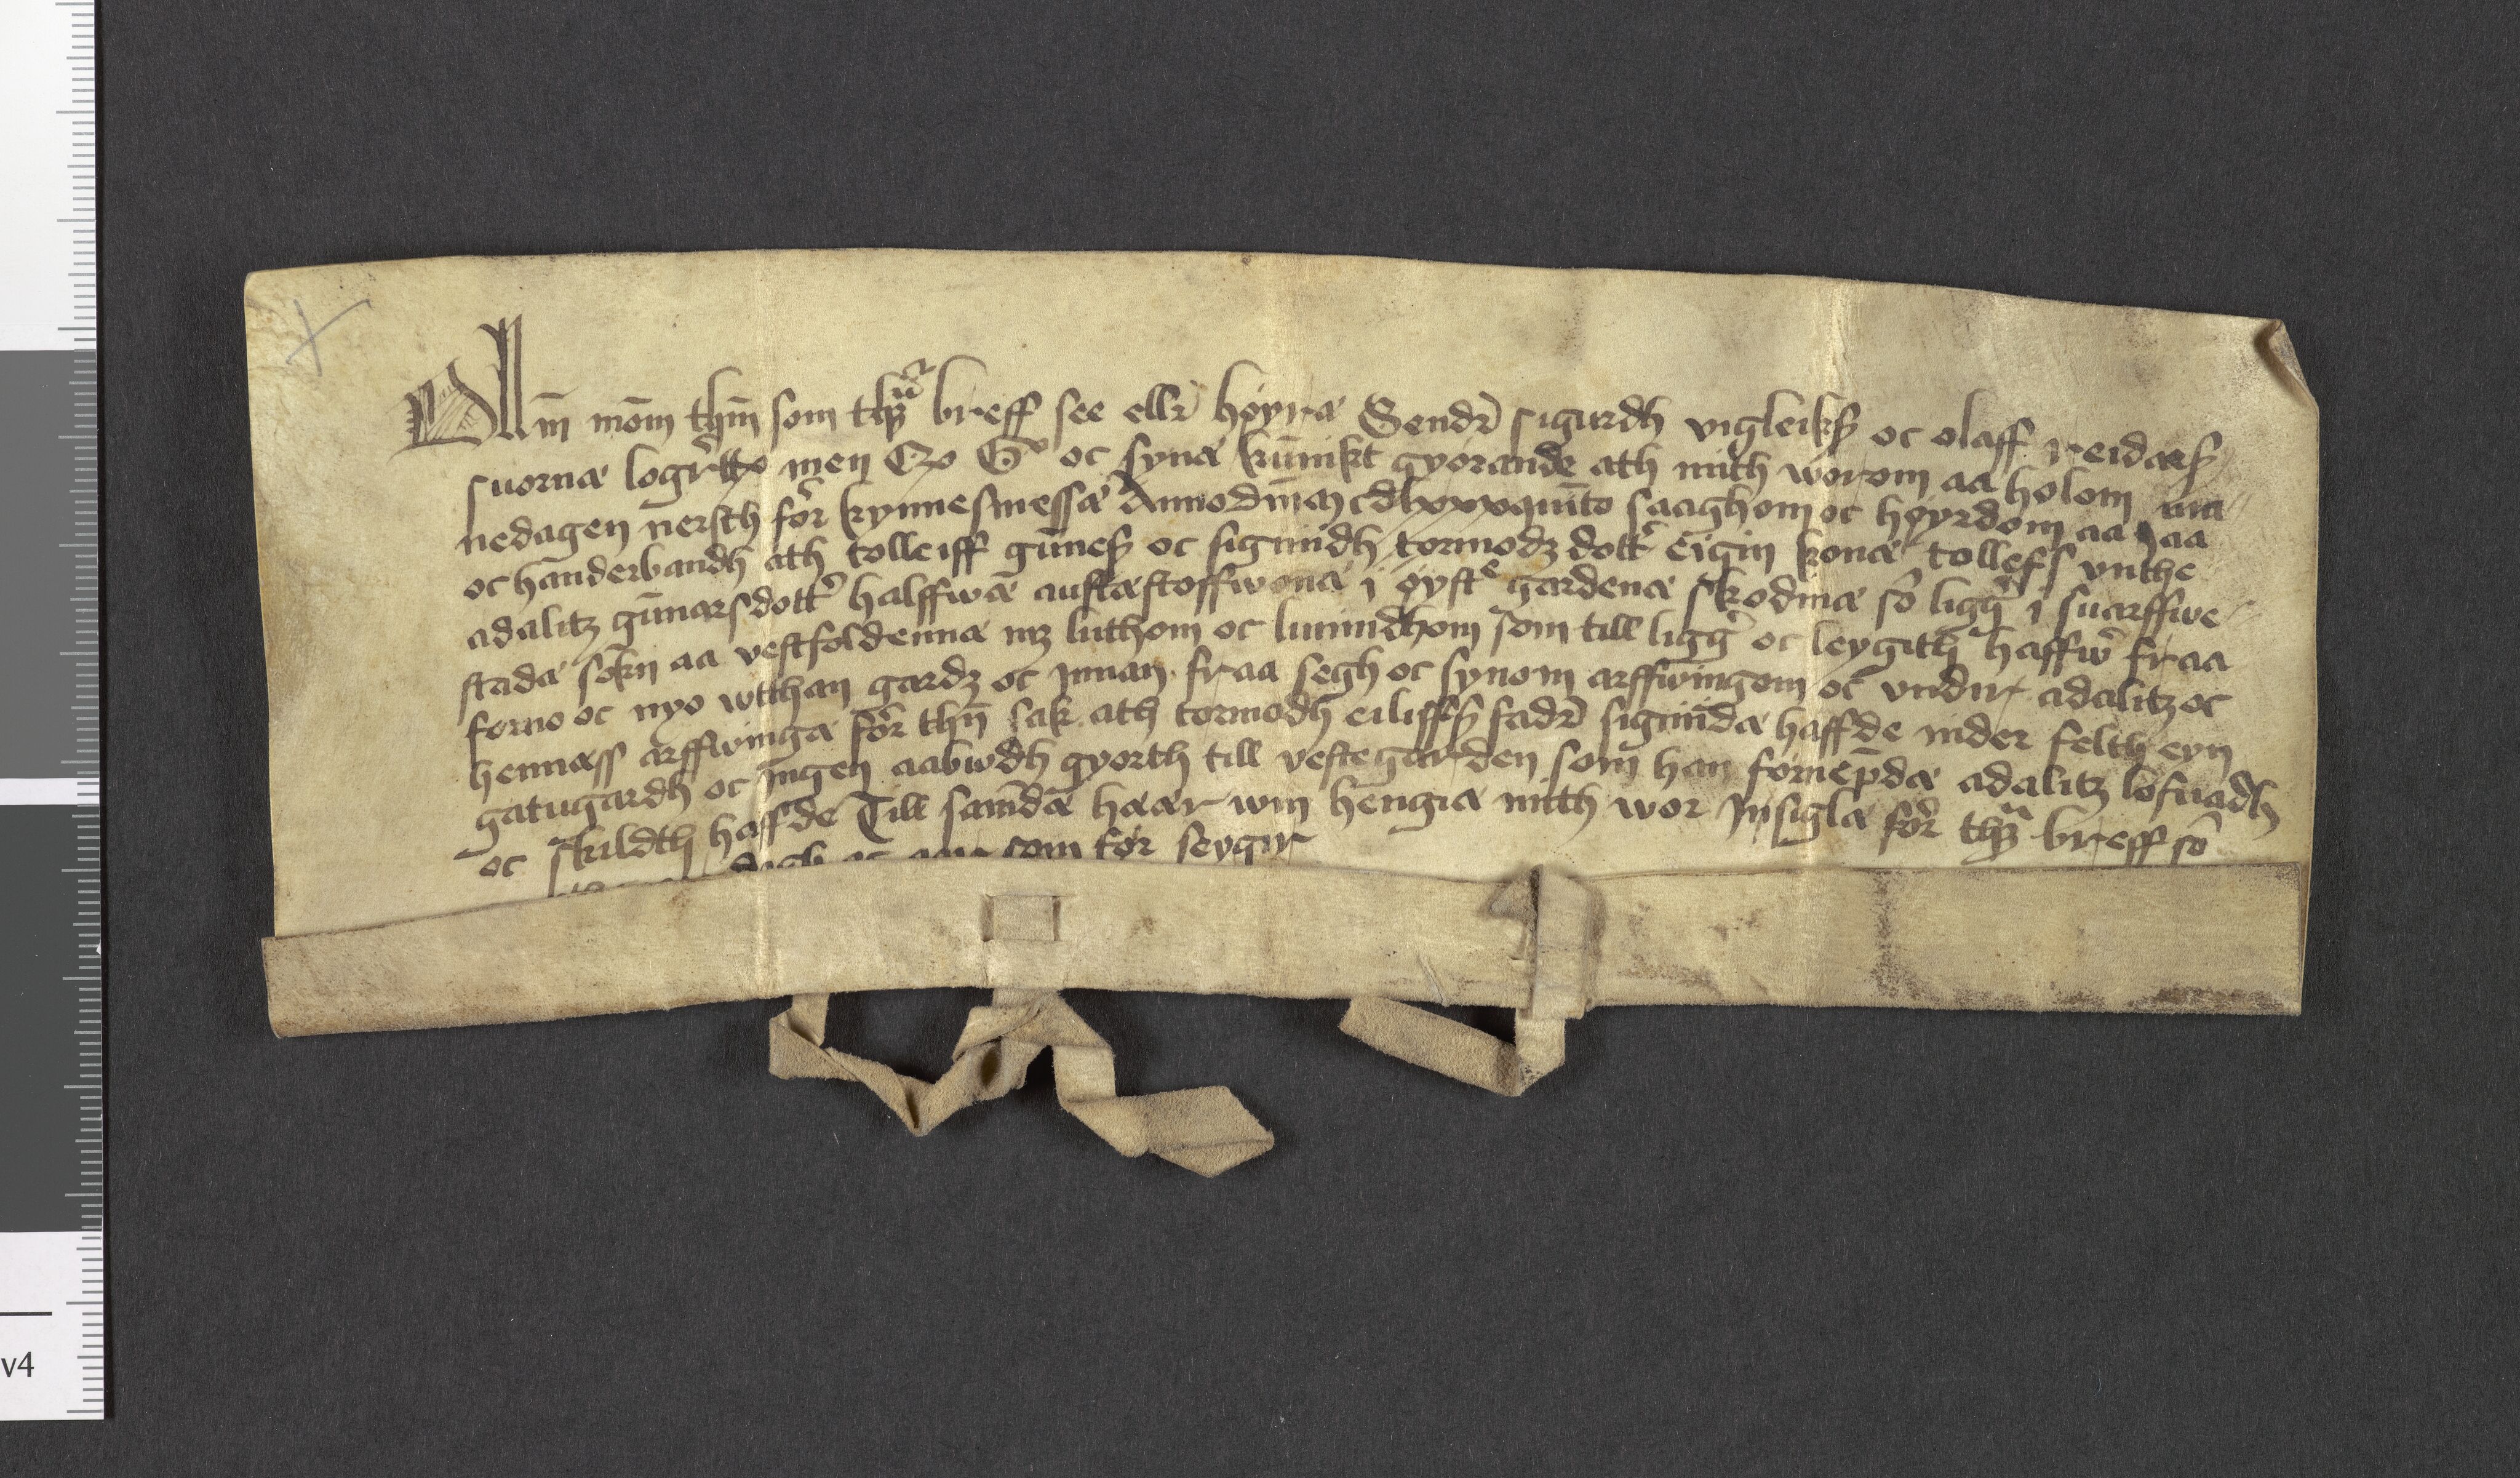 Allm̄ mōm thm̄ som thꝫu̇ breff see ellr̄ høyræ Sendr̄ sigurdh vigleikß oc olaff reidarß
suornæ logr̄tto men Qo Gͮ oc synæ kūnikt gyørande ath mith worom aa holom ma
nedagen nersth før̄ kynnesmessæ Anno dm̄ Mcdlxxxquīto saaghom oc høyrdom aa yaa
oc handerbandh ath tolleiff gūneß oc sigrūidh tormodꝫ dottr̄ eigin konæ tollefs vnthe
adalitꝫ gūnarsdottr̄ halffwā austæstoffwonæ i øystᵉ gardenæ skodinæ sō liggr̄ i suarffwe
stadæ sōkn aa vestfoldennæ mꝫ luthom oc lunnidhom som till liggr̄ oc leygith haffwr̄ fraa
forno oc nyo wtthan gardꝫ oc jnnan fraa segh oc synom arffwingom oc vndir adalitꝫ oc
hennæss arffwingæ før̄ thn̄ sak ath tormodh eiliffß fadr̄ sigrīdæ haffde nider felth eyn
gatugardh oc jngen aabwdh gyorth till vestegarden som han fornēpdæ adalitꝫ lofuadh
oc skildth haffde Till sāmdæ haar wm hengiæ mith wor jnsiglæ før̄ thꝫa breff sō
dagh oc aar som før seygir